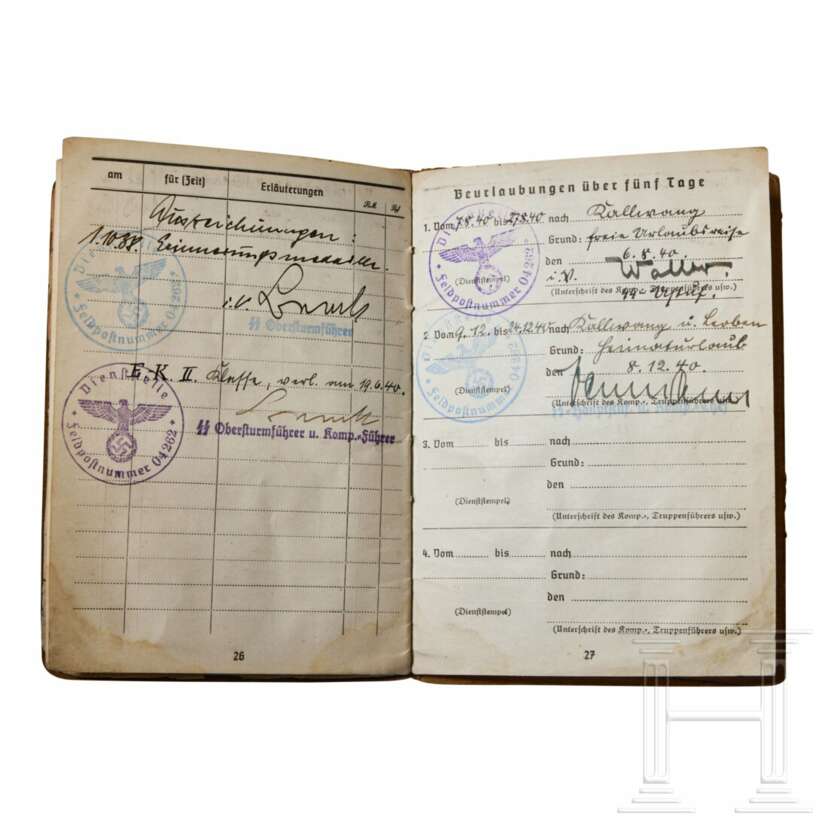 am für (Zeit) Erläuterungen
Auszeichnungen:
1.10.38. Erinnerungsmedaille.
i.V.
SS Obersturmführer
Dienststelle
Feldpostnummer 04262
E.K. II. Klasse, verl. am 19.6.40.
SS Obersturmführer u. Komp.-Führer
Dienststelle
Feldpostnummer 04262
26
Beurlaubungen über fünf Tage
1. Vom 7.8.40 bis 27.8.40 nach Kallwang
Grund: freie Urlaubsreise
den 6.8.40.
i.V.
(Dienststempel)
(Unterschrift des Komp.-, Truppenführers usw.)
SS-Ustuf.
Feldpostnummer 04262
2. Vom 9.12. bis 24.12.40 nach Kallwang u. Leoben
Grund: Heimaturlaub
den 8.12.40.
(Dienststempel)
(Unterschrift des Komp.-, Truppenführers usw.)
Feldpostnummer 04262
3. Vom bis nach
Grund:
den
(Dienststempel)
(Unterschrift des Komp.-, Truppenführers usw.)
4. Vom bis nach
Grund:
den
(Dienststempel)
(Unterschrift des Komp.-, Truppenführers usw.)
27